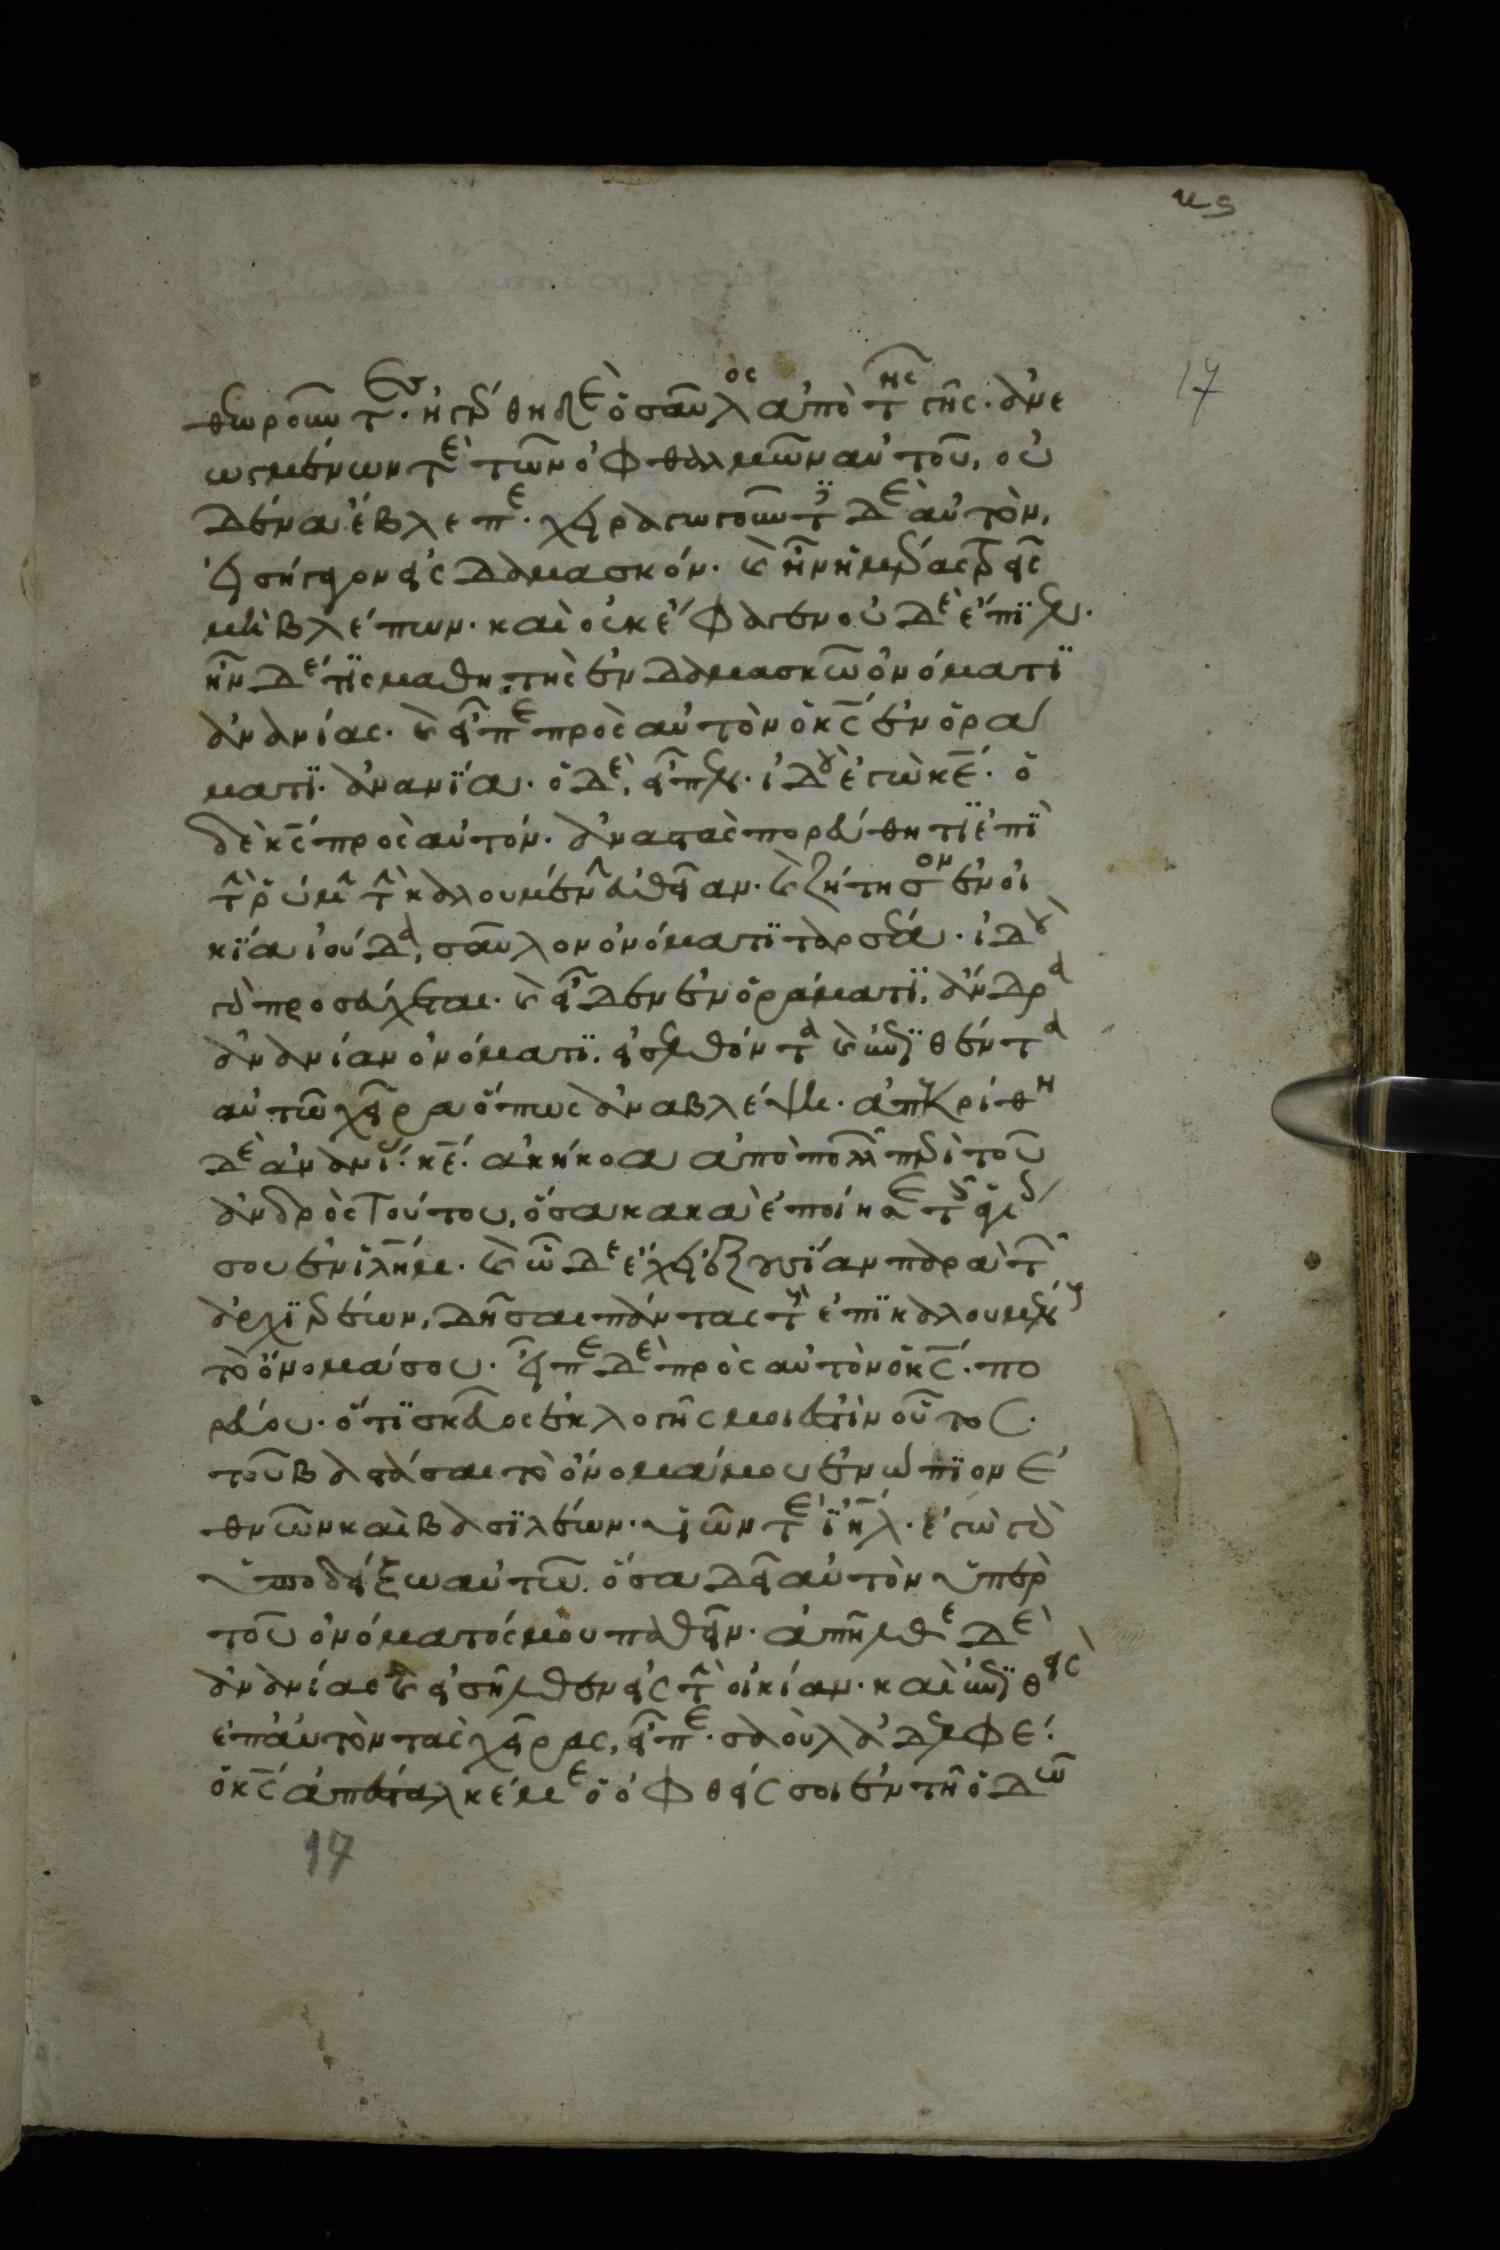 κς
17
θεωροῦντες. ἠγέρθη δὲ ὁ σαῦλος ἀπὸ τῆς γῆς. ἀνε
ωγμένων τὲ τῶν ὀφθαλμῶν αὐτοῦ, οὐ
δένα ἔβλεπε. χειραγωγοῦντες δὲ αὐτὸν,
εἰσήγαγον εἰς δαμασκόν. καὶ ἦν ἡμέρας τρεῖς
μὴ βλέπων. καὶ οὐκ ἔφαγεν οὐδὲ ἔπϊεν.
ἦν δέ τϊς μαθητὴς ἐν δαμασκῶ ὀνόματϊ
ἀνανίας. καὶ εἶπε πρὸς αὐτὸν ὁ κς ἐν ὁρά
ματϊ. ἀνανϊα. ὁ δὲ, εἶπεν. ἰδοὺ ἐγὼ κε. ὁ
δὲ κς πρὸς αὐτόν. ἀναστὰς πορεύθητϊ ἐπϊ
τὴν ῥύμην τὴν καλουμένην εὐθεῖαν. καὶ ζήτησον ἐν οἰ
κϊα ἰούδα, σαῦλον ὀνόματϊ ταρσέα. ἰδοὺ
γὰρ προσεύχεται. καὶ εἶδεν ἐν ὁράματϊ, ἄνδρα
ἀνανίαν ὀνόματϊ. εἰσελθόντα καὶ ἐπϊθέντα
αὐτῶ χεῖρα ὅπως ἀναβλέψη. ἀπεκρίθη
δὲ ἀνανίας. κε. ἀκήκοα ἀπὸ πολλῶν περὶ τοῦ
ἀνδρὸς τούτου, ὅσα κακὰ ἐποίησε τοῖς ἁγίοις
σου ἐν ἱλημ. καὶ ὧδε ἔχει ἐξουσϊαν παρὰ τῶν
ἀρχϊερέων, δῆσαι πάντας τοὺς ἐπϊκαλουμένους
τὸ ὄνομά σου. εἶπε δὲ πρὸς αὐτὸν ὁ κς. πο
ρεύου. ὅτϊ σκεῦος ἐκλογῆς μοι ἐστὶν οὗτος.
τοῦ βαστάσαι τὸ ὄνομά μου ἐνώπϊον ἐ
θνῶν καὶ βασϊλέων. υἱῶν τὲ ϊηλ. ἐγὼ γὰρ
ὑποδείξω αὐτῶ. ὅσα δεῖ αὐτὸν ὑπὲρ
τοῦ ὀνόματός μου παθεῖν. ἀπῆλθε δὲ
ἀνανίας καὶ εἰσῆλθεν εἰς τὴν οἰκίαν. καὶ ἐπϊθεὶς
ἐπ αὐτὸν τὰς χεῖρας, εἶπε. σαοὺλ ἀδελφέ.
ὁ κς ἀπέσταλκέ με ὁ ὀφθείς σοι ἐν τῆ ὁδῶ
17